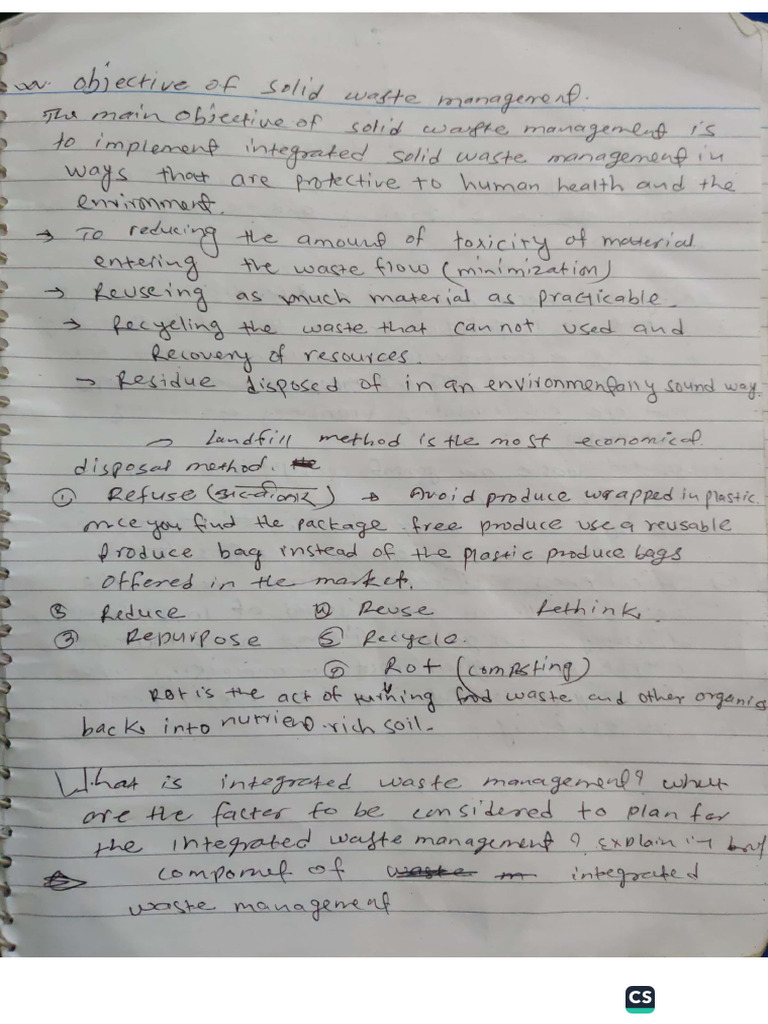 objective of solid waste management.
The main objective of solid waste management is
to implement integrated solid waste management in
ways that are protective to human health and the
environment.
→ To reducing the amount of toxicity of material
entering the waste flow (minimization)
→ Reuseing as much material as practicable.
→ Recycling the waste that can not used and
Recovery of resources.
→ Residue disposed of in an environmentally sound way.
→ Landfill method is the most economical
disposal method.
① Refuse → Avoid produce wrapped in plastic.
once you find the package free produce use a reusable
produce bag instead of the plastic produce bags
offered in the market.
Reduce ④ Reuse Rethink.
③ Repurpose ⑤ Recycle.
Rot (compsting)
Rot is the act of turning food waste and other organics
back into nutrient-rich soil.
What is integrated waste management? what
are the facter to be considered to plan for
the integrated waste management? Explain it brief
component of integrated
waste management
CS